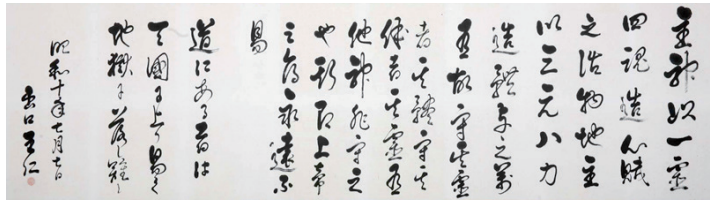 主神以一靈
四魂造心賦
之活物地主
以三元八力
造體與之萬
有故守其靈
者其體守其
體者其靈有
他神非守之
也斯即上帝
之命永遠不
易
道にある者は
天國に上り易く
地獄に落難し
昭和十年七月七日
出口王仁